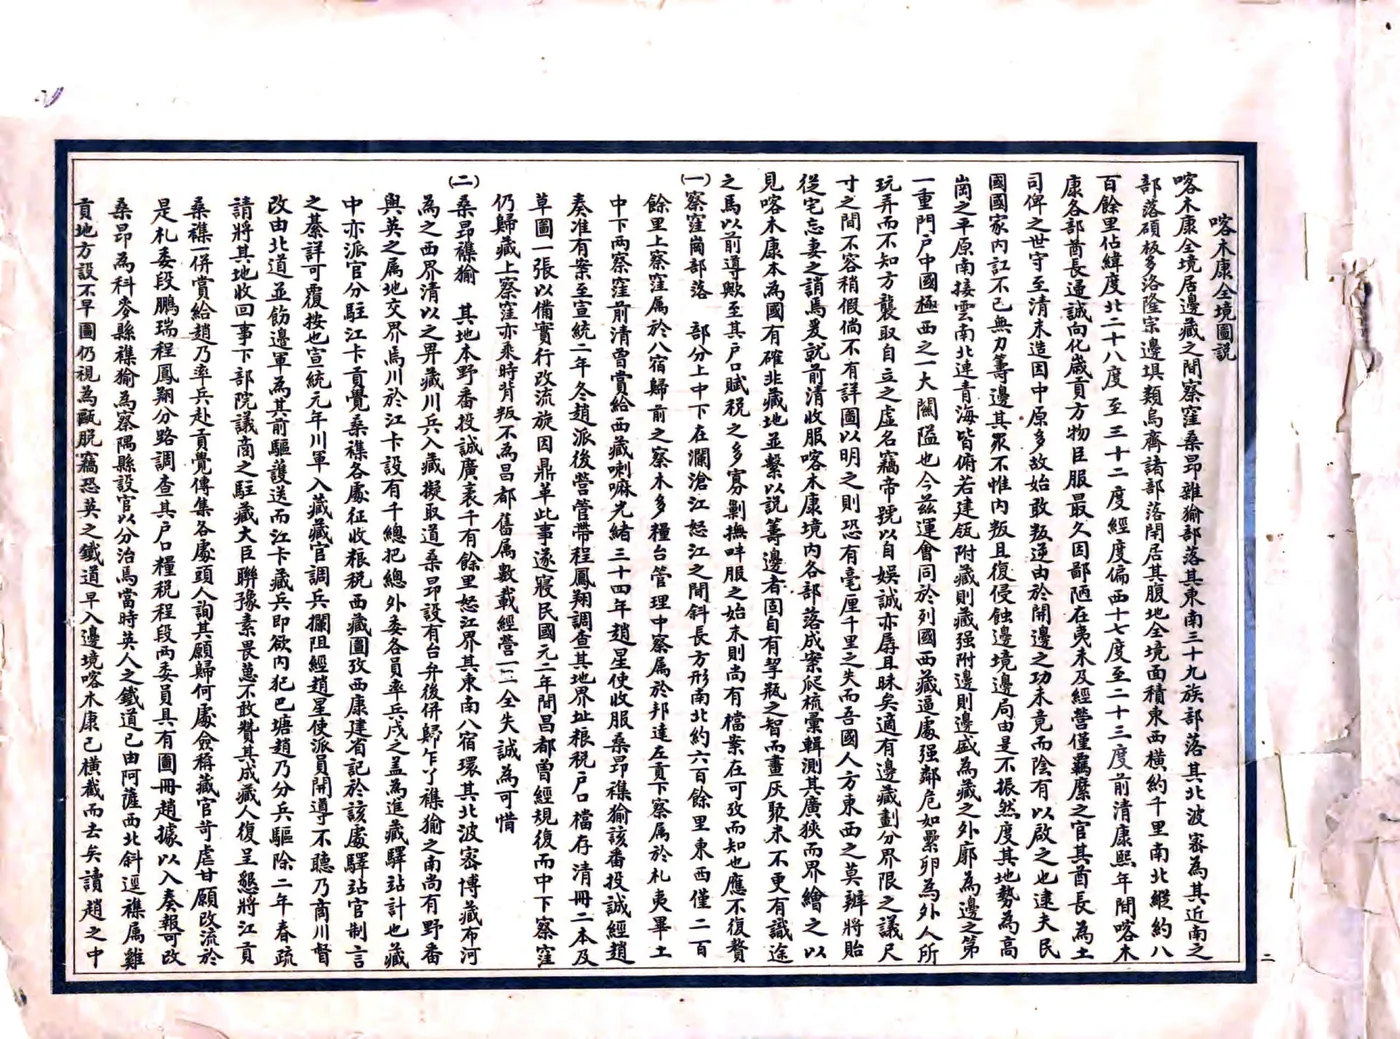 喀木康全境圖説
喀木康全境居邊藏之間察窪桑昂雜㺄部落其東南三十九族部落其北波密為其近南之
部落碩板多洛隆宗邊垻類烏齊諸部落閒居其腹地全境面積東西橫約千里南北縱約八
百餘里佔緯度北二十八度至三十二度經度偏西十七度至二十三度前清康熙年間喀木
康各部酋長通誠向化歲貢方物臣服最久因鄙陋在夷未及經營僅羈縻之官其酋長為土
司俾之世守至清末造因中原多故始敢叛逆由於開邊之功未竟而陰有以啟之也逮夫民
國國家內訌不已無力籌邊其眾不惟內叛且復侵蝕邊境邊局由是不振然度其地勢為高
崗之平原南接雲南北連青海皆俯若建瓴附藏則藏强附邊則邊盛為藏之外廓為邊之第
一重門户中國極西之一大關隘也今兹運會同於列國西藏逼處强鄰危如纍卵為外人所
玩弄而不知方襲取自立之虛名竊帝號以自娛誠亦孱且昧矣適有邊藏劃分界限之議尺
寸之間不容稍假倘不有詳圖以明之則恐有毫厘千里之失而吾國人方東西之莫辨將貽
從宅忘妻之誚焉爰就前清收服喀木康境內各部落成案爬梳彙輯測其廣狹而界繪之以
見喀木康本為國有確非藏地並繫以説籌邊者固自有挈瓶之智而畫灰聚米不更有識途
之馬以前導歟至其户口賦税之多寡剿撫呌服之始末則尚有檔案在可攷而知也應不復贅
㈠察窪崗部落　部分上中下在瀾滄江怒江之間斜長方形南北約六百餘里東西僅二百
餘里上察窪属於八宿歸前之察木多糧台管理中察属於邦達左貢下察属於札夷畢土
中下兩察窪前清曾賞給西藏喇嘛光緒三十四年趙星使收服桑昂襍㺄該番投誠經趙
奏准有案至宣統二年冬趙派後營管帶程鳳翔調查其地界址粮税户口檔存清冊二本及
草圖一張以備實行改流旋因鼎革此事遂寢民國元二年間昌都曾經規復而中下察窪
仍歸藏上察窪亦乘時背叛不為昌都舊属數載經營一旦全失誠為可惜
㈡桑昂襍㺄　其地本野番投誠廣袤千有餘里怒江界其東南八宿環其北波密博藏布河
為之西界清以之畀藏川兵入藏擬取道桑昂設有台弁後併歸乍丫襍㺄之南尚有野番
與英之属地交界焉川於江卡設有千總把總外委各員率兵戍之盖為進藏驛站計也藏
中亦派官分駐江卡貢覺桑襍各處征收粮税西藏圖攷西康建省記於該處驛站官制言
之綦詳可覆按也宣統元年川軍入藏藏官調兵攔阻經趙星使派員開導不聽乃商川督
改由北道並飭邊軍為其前驅護送而江卡藏兵即欲內犯巴塘趙乃分兵驅除二年春疏
請將其地收回事下部院議商之駐藏大臣聯豫素畏葸不敢贊其成藏人復呈懇將江貢
桑襍一併賞給趙乃率兵赴貢覺傳集各處頭人詢其願歸何處僉稱藏官苛虐甘願改流於
是札委段鵬瑞程鳳翔分路調查其户口糧税程段兩委員具有圖冊趙據以入奏報可改
桑昂為科麥縣襍㺄為察隅縣設官以分治焉當時英人之鐵道已由阿薩西北斜逕襍属雞
貢地方設不早圖仍視為甌脱竊恐英之鐵道早入邊境喀木康已橫截而去矣讀趙之中
二